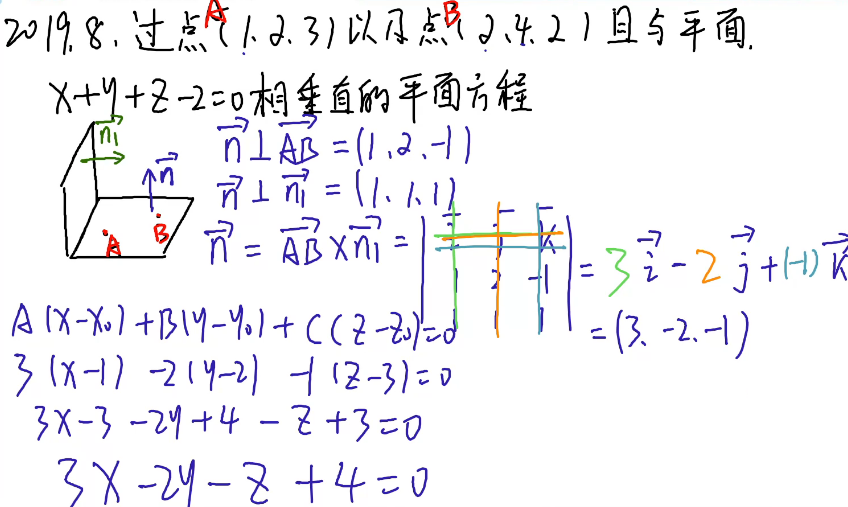 2019.8. 过点A(1.2.3)以及点B(2.4.2)且与平面.
X+y+z-2=0相垂直的平面方程
n₁→
n→
A
B
n→⊥AB→=(1.2.-1)
n→⊥n₁→=(1.1.1)
n→=AB→×n₁→=|i→ j→ k→; 1 2 -1; 1 1 1|=3i→-2j→+(-1)k→
=(3.-2.-1)
A(x-x₀)+B(y-y₀)+C(z-z₀)=0
3(x-1)-2(y-2)-1(z-3)=0
3x-3-2y+4-z+3=0
3x-2y-z+4=0